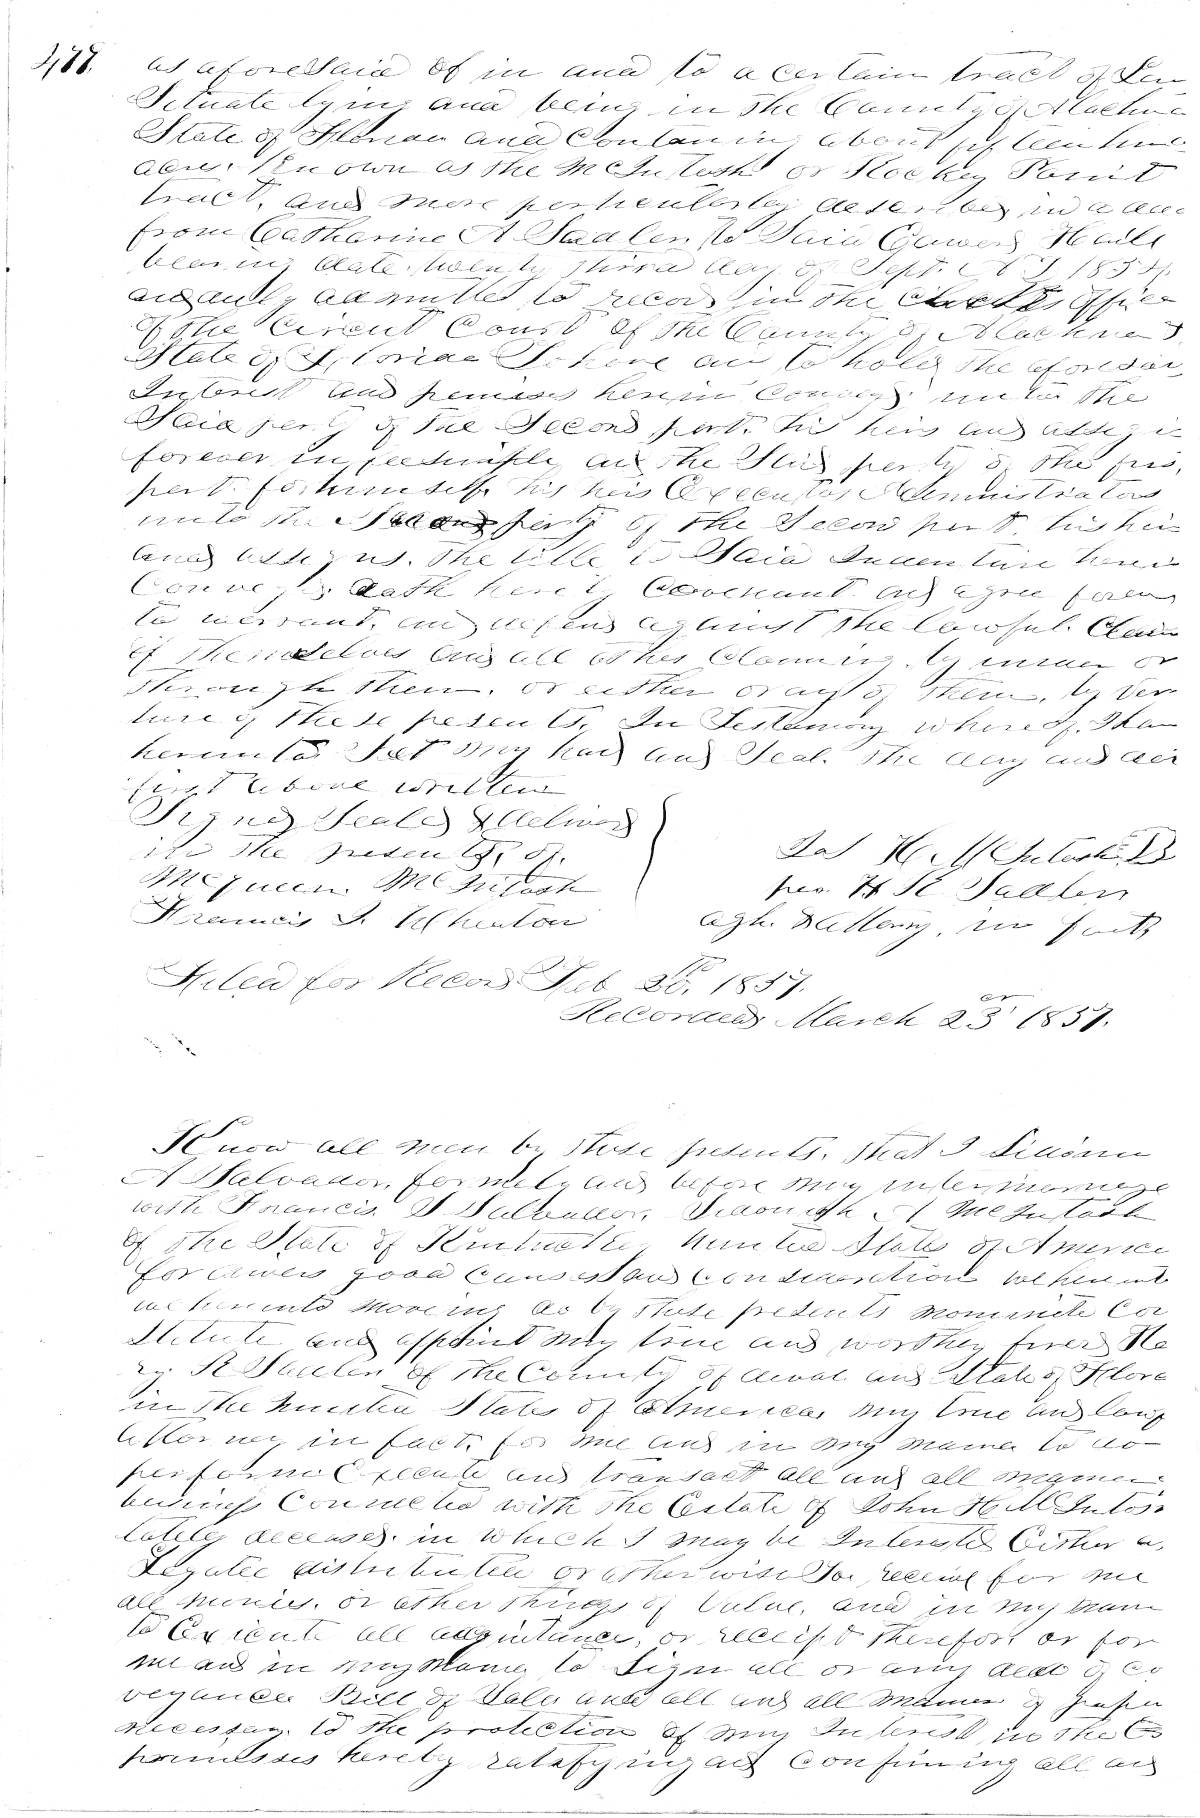 477.
as aforesaid of in and to a certain tract of Lan
Situate lying and being in the County of Alachua
State of Florida and Containing about fifteen hun
acres Known as the McIntosh or Rockey Point
tract, and more perticularly described in a dee
from Catharine A Sadler to Said Edward Haile
bearing date twenty third day of Sept. A D 1854.
and duly admitted to record in the Clerks Office
of the Circuit Court of the County of Alachua &
State of Florida To have and to hold the aforesaid
Interest and premises herein Conveyed unto the
Said perty of the Second part. his heirs and assigns
forever in feesimple, and the Said perty of the first
pert. for himself his heirs Executors Administrators
unto the Second perty of the Second pert his heirs
and assigns. The title to Said Indenture herein
Conveyed. doth hereby Covenant and agree forever
to warrant, and defend against the lawful. Claim
of Themselves and all others Claiming. by under or
through them. or either or any of them, by ver
ture of these presents, In Testamony whereof. I have
hereunto Set my hand and Seal. The day and
first above written
Signed Sealed & Delivered
in the presents, of.
McQueen McIntosh
Francis I. Wheaton
H. McIntosh
per. H R Sadler
Attorney, in fact,
Filed for Record Feb 20. 1857.
Recorded March 23 1857.
Know all men by these presents, that I
A Salvador, formely and before my intermarriage
with Francis Salvador, A McIntosh
of the State of Kentucky United States of America
for divers good Causes and Consideration we hereunto
we hereunto moveing do by these presents nominate Con
stitute and appoint my true and worthey friend He
ry R Sadler of the County of duval and State of Flore
in the United States of America, my true and lawf
Attorney in fact, for me and in my name to do
perform Execute and transact all and all manner
business Connected with the Estate of John H McIntosh
lately deceased. in which I may be Interested Either a
Legatee distributee or otherwise To receive for me
all monies. or other things of Value, and in my name
to Execute all acquintance, or receipt therefor, or for
me and in my Name, to Sign all or any deed of co
veyance Bill of Sale and all and all manner of paper
necessary to the protection of my Interest in the Es
premisses hereby ratafying and Confirming all and